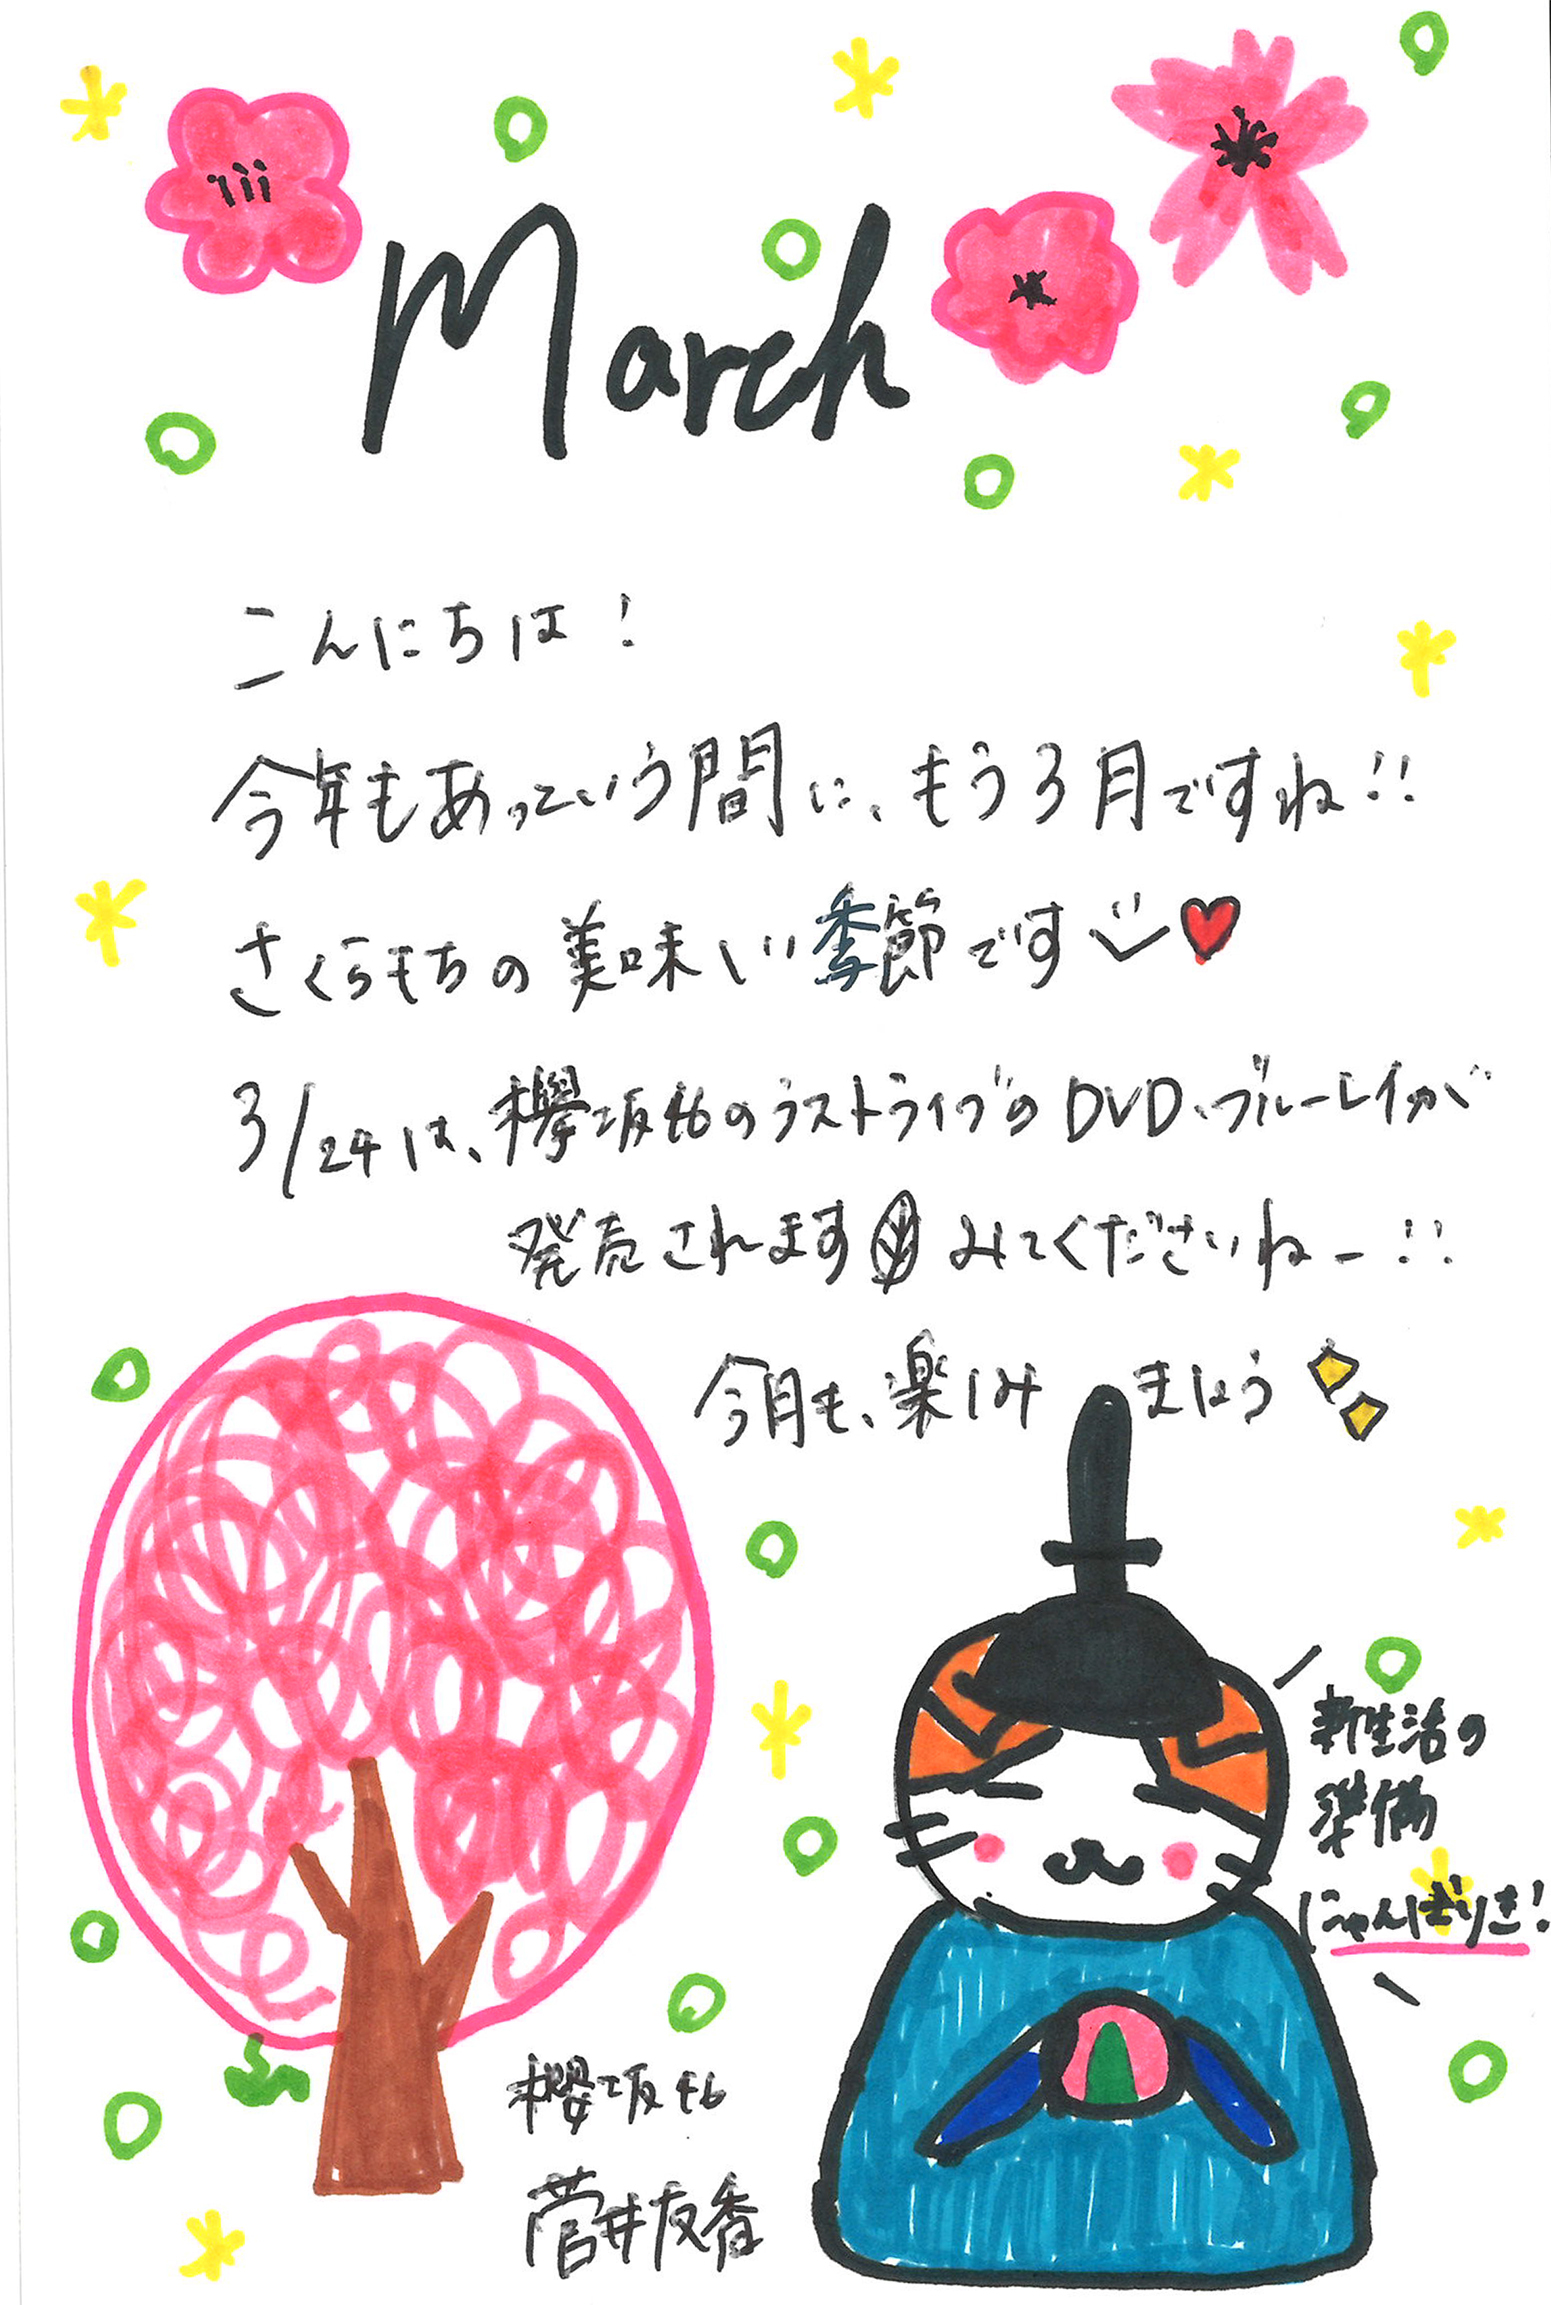 March
こんにちは！
今年もあっという間に、もう3月ですね!!
さくらもちの美味しい季節です
3/24は、欅坂46のラストライブのDVD、ブルーレイが
発売されます みてくださいねー!!
今月も、楽しみましょう
新生活の
準備
にゃんばりき!
櫻坂46
菅井友香